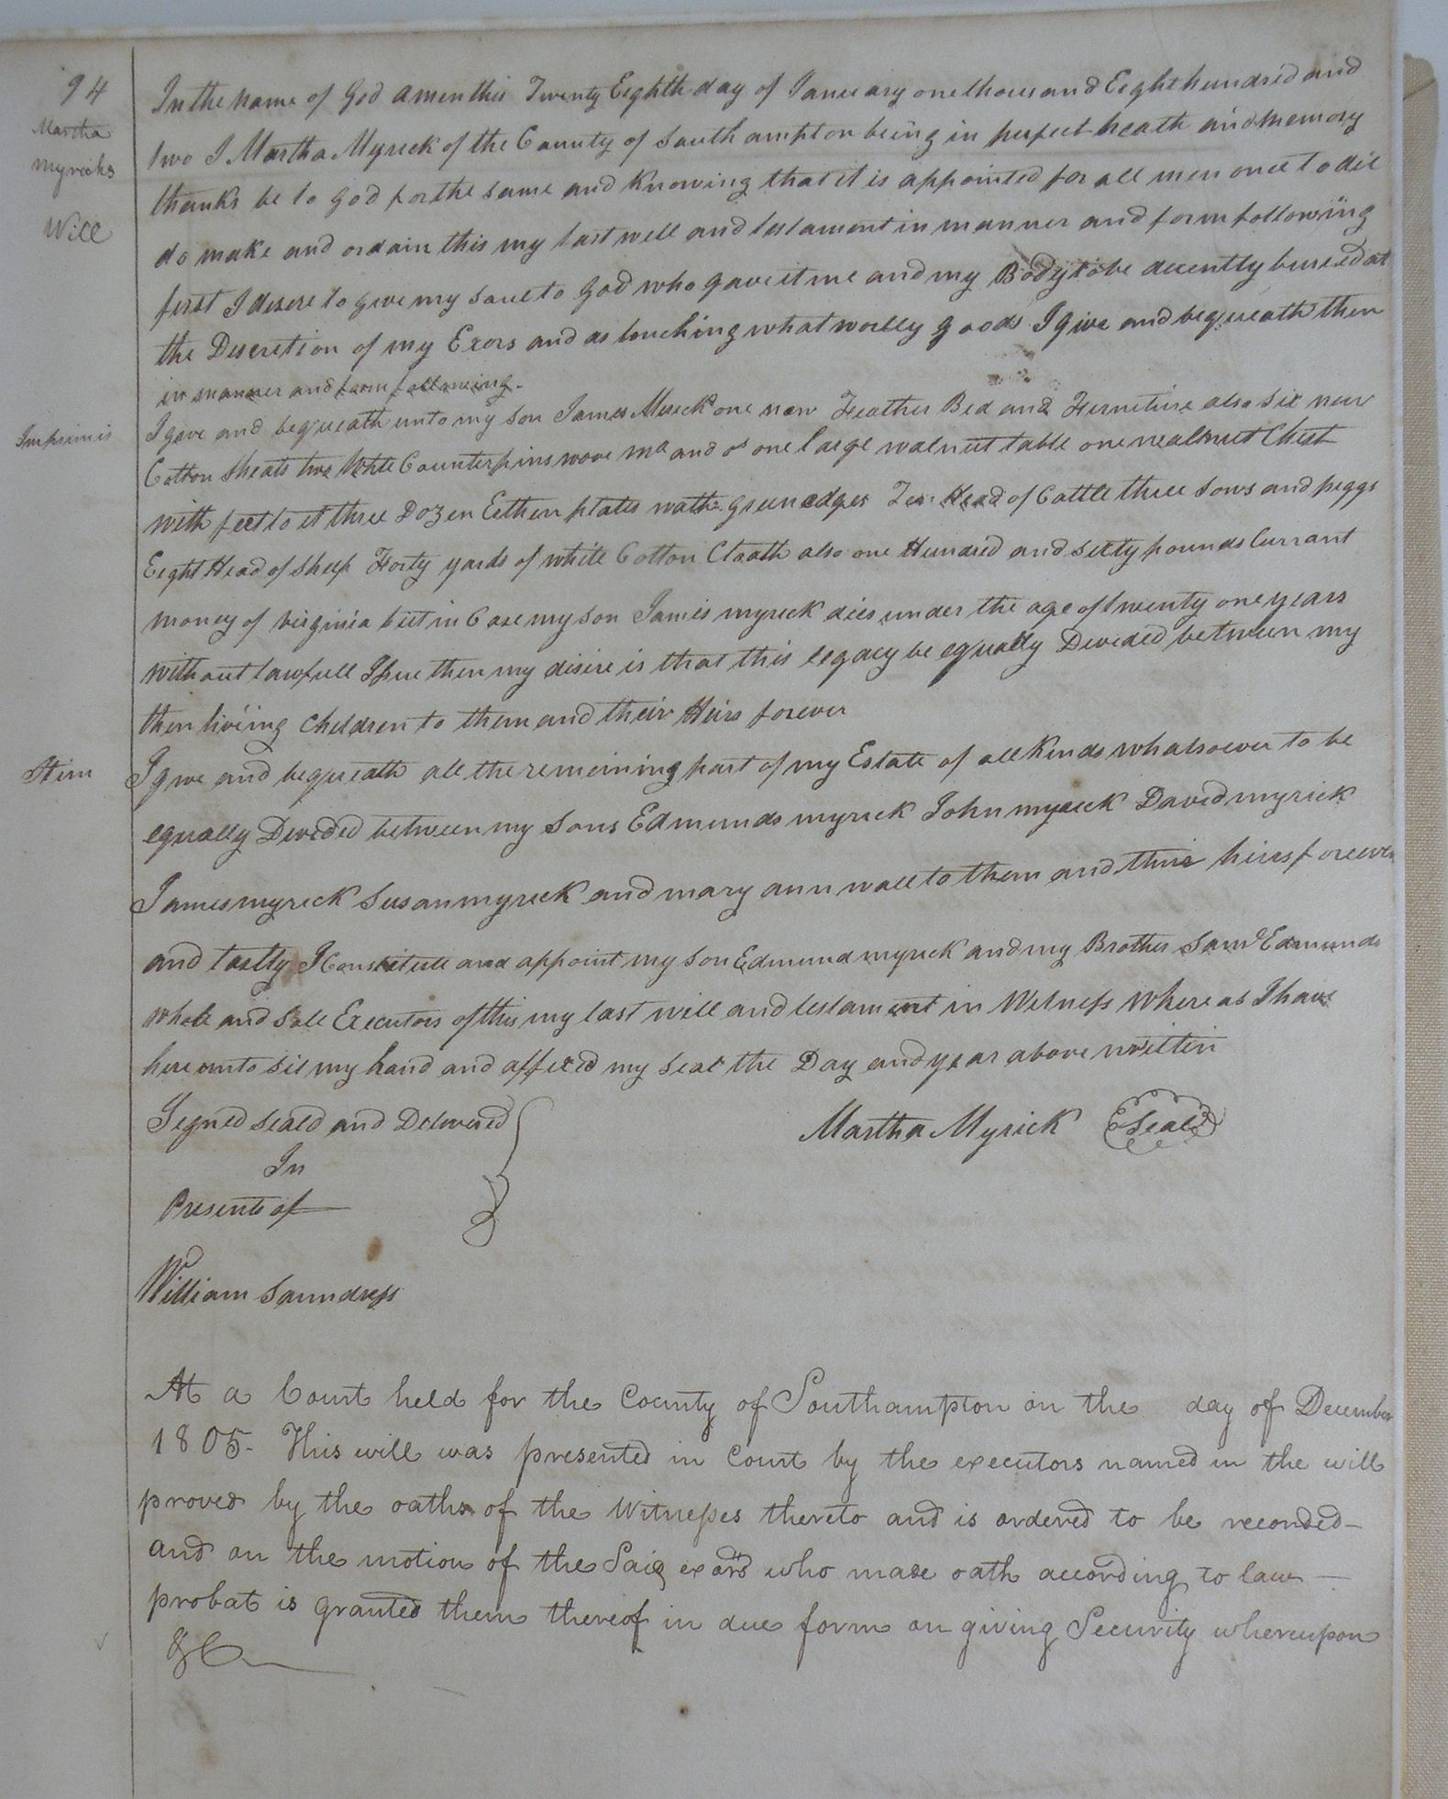 94
Martha
Myricks
Will
In the name of God amen this Twenty Eighth day of January one thousand Eight hundred and
two I Martha Myrick of the County of Southampton being in perfect heath and memory
thanks be to God for the same and Knowing that it is appointed for all men once to die
do make and ordain this my last will and testament in manner and form following
first I desire to give my soul to God who gave it me and my Body to be decently buried at
the Discretion of my Exors and as touching what worlly goods I give and bequeath them
in manner and form following.
Imprimis
I give and bequeath unto my son James Mireck one new Feather Bed and Furniture also six new
Cotton Sheats two White Counterpins wove and one large walnut table one wallnut Chest
with feet to it three Dozen Eethen plates with green edges Ten Head of Cattle three Sows and piggs
Eight Head of Sheep Forty yards of white Cotton Cloath also one Hundred and sixty pounds Currant
money of Virginia but in Case my son James myrick dies under the age of twenty one years
without lawfull Issue then my disire is that this legacy be equally Devided between my
then living Children to them and their Heirs forever
Item
I give and bequeath all the remaining part of my Estate of all Kinds whatsoever to be
equally Devided between my sons Edmunds myrick John myrick David myrick
James myrick Susan myrick and mary ann wall to them and thire heirs forever
and lastly I Constitute and appoint my son Edmund myrick and my Brother Saml Edmunds
whole and Sole Executors of this my last will and testament in Witness Where as I have
here unto sit my hand and affixed my seal the Day and year above written
Signed Seald and Delivered
In
Presents of
Martha Myrick Seal
William Saunders
At a Court held for the County of Southampton on the day of December
1805. This will was presented in Court by the executors named in the will
proved by the oaths of the Witnesses thereto and is ordered to be recorded
and on the motion of the Said exōrs who made oath according to law
probat is granted them thereof in due form on giving Security whereupon
&C